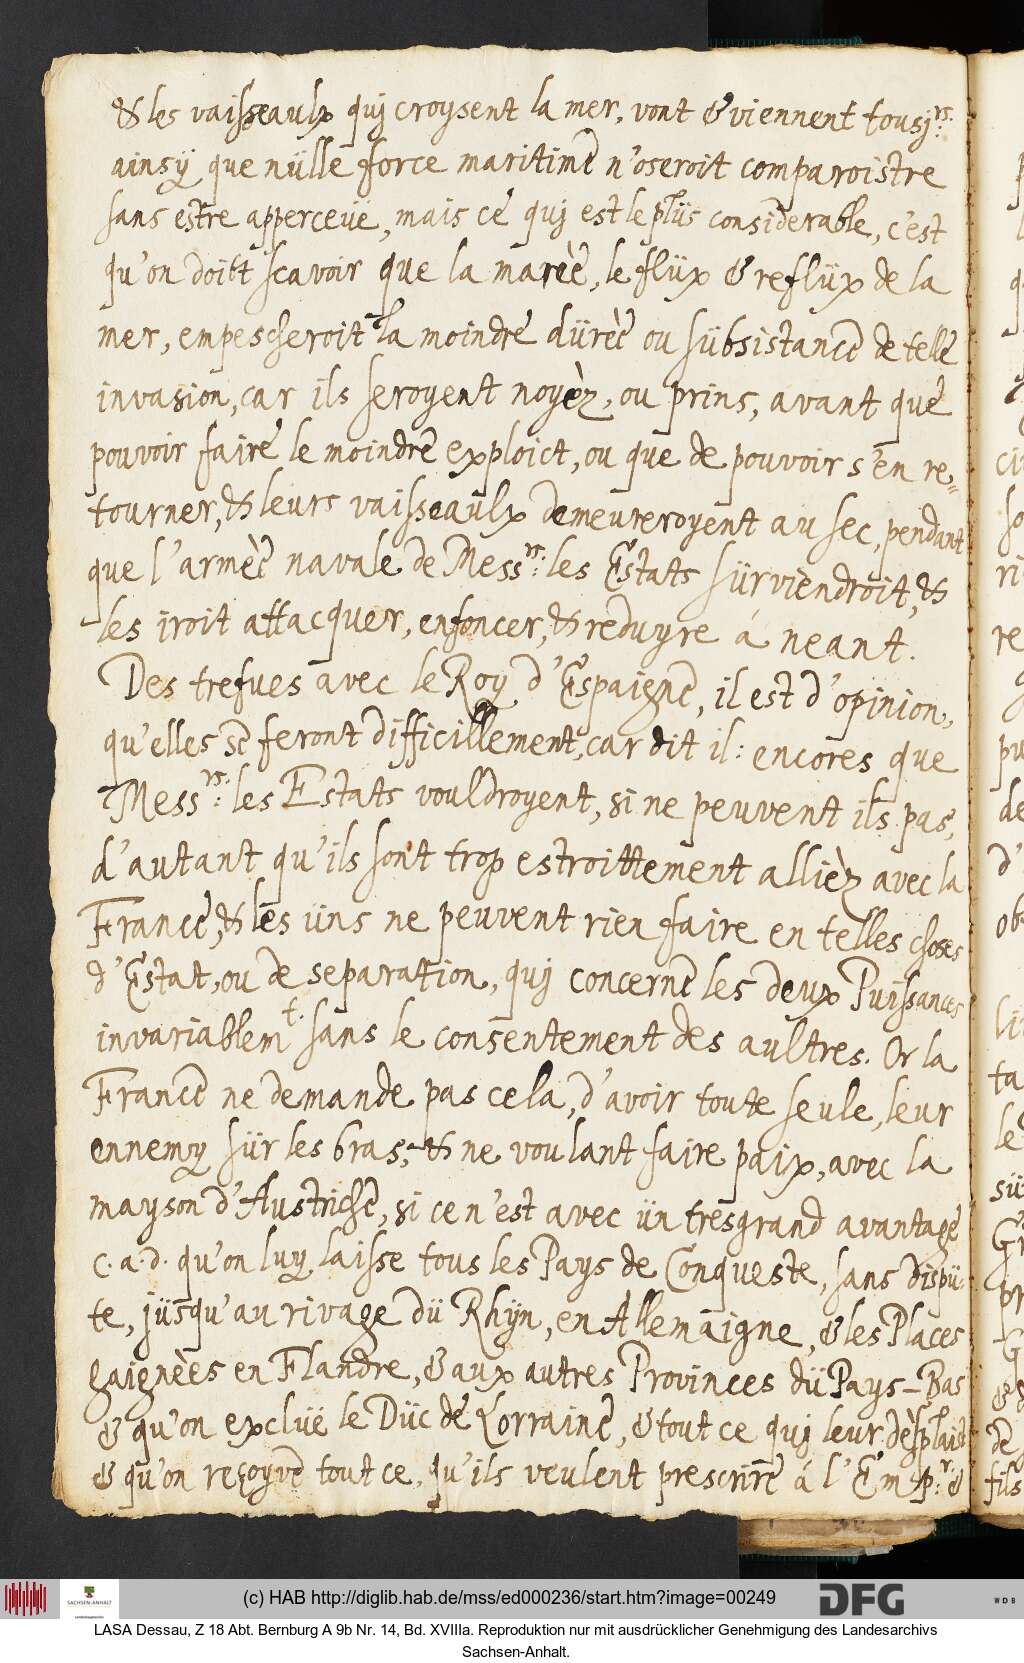 & les vaisseaulx quj croysent la mer, vont & viennent tousj.rs:
ainsÿ que nülle force maritime n'oseroit comparoistre
sans estre apperceüe, mais ce quj est le plüs considerable, c'est
qu'on doibt scavoir que la marèe, le flüx & reflüx de la
mer, empescheroit la moindre dürèe ou sübsistance de telle
invasion, car ils seroyent noyèz, ou prins, avant que
pouvoir faire le moindre exploict, ou que de pouvoir s'en re-
tourner, & leurs vaisseaulx demeureroyent au sec, pendant
que l'armèe navale de Mess.rs: les Estats sürviendroit, &
les iroit attacquer, enfoncer, & reduyre á neant.
Des trefues avec le Roy d'Espaigne, il est d'opinion,
qu'elles se feront difficillement, car dit il: encores que
Mess.rs: les Estats vouldroyent, si ne peuvent ils pas,
d'autant qu'ils sont trop estroittement allièz avec la
France, & les üns ne peuvent rien faire en telles choses
d'Estat, ou de separation, quj concerne les deux Puissances
invariablem.t sans le consentement des aultres. Or la
France ne demande pas cela, d'avoir toute seule, leur
ennemy sür les bras, & ne voulant faire paix, avec la
mayson d'Austriche, si ce n'est avec ün tresgrand avantage
c. a. d. qu'on luy laisse tous les Pays de Conqueste, sans dispü-
te, jüsqu'au rivage dü Rhÿn, en Allemaigne, & les Places
gaignèes en Flandre, & aux autres Provinces dü Pays-Bas
& qu'on exclüe le Düc de Lorraine, & tout ce quj leur dèsplaist
& qu'on reçoyve tout ce, qu'ils veulent prescrire á l'Emp.r: &
(c) HAB http://diglib.hab.de/mss/ed000236/start.htm?image=00249
SACHSEN-ANHALT
DFG
WDB
LASA Dessau, Z 18 Abt. Bernburg A 9b Nr. 14, Bd. XVIIIa. Reproduktion nur mit ausdrücklicher Genehmigung des Landesarchivs
Sachsen-Anhalt.